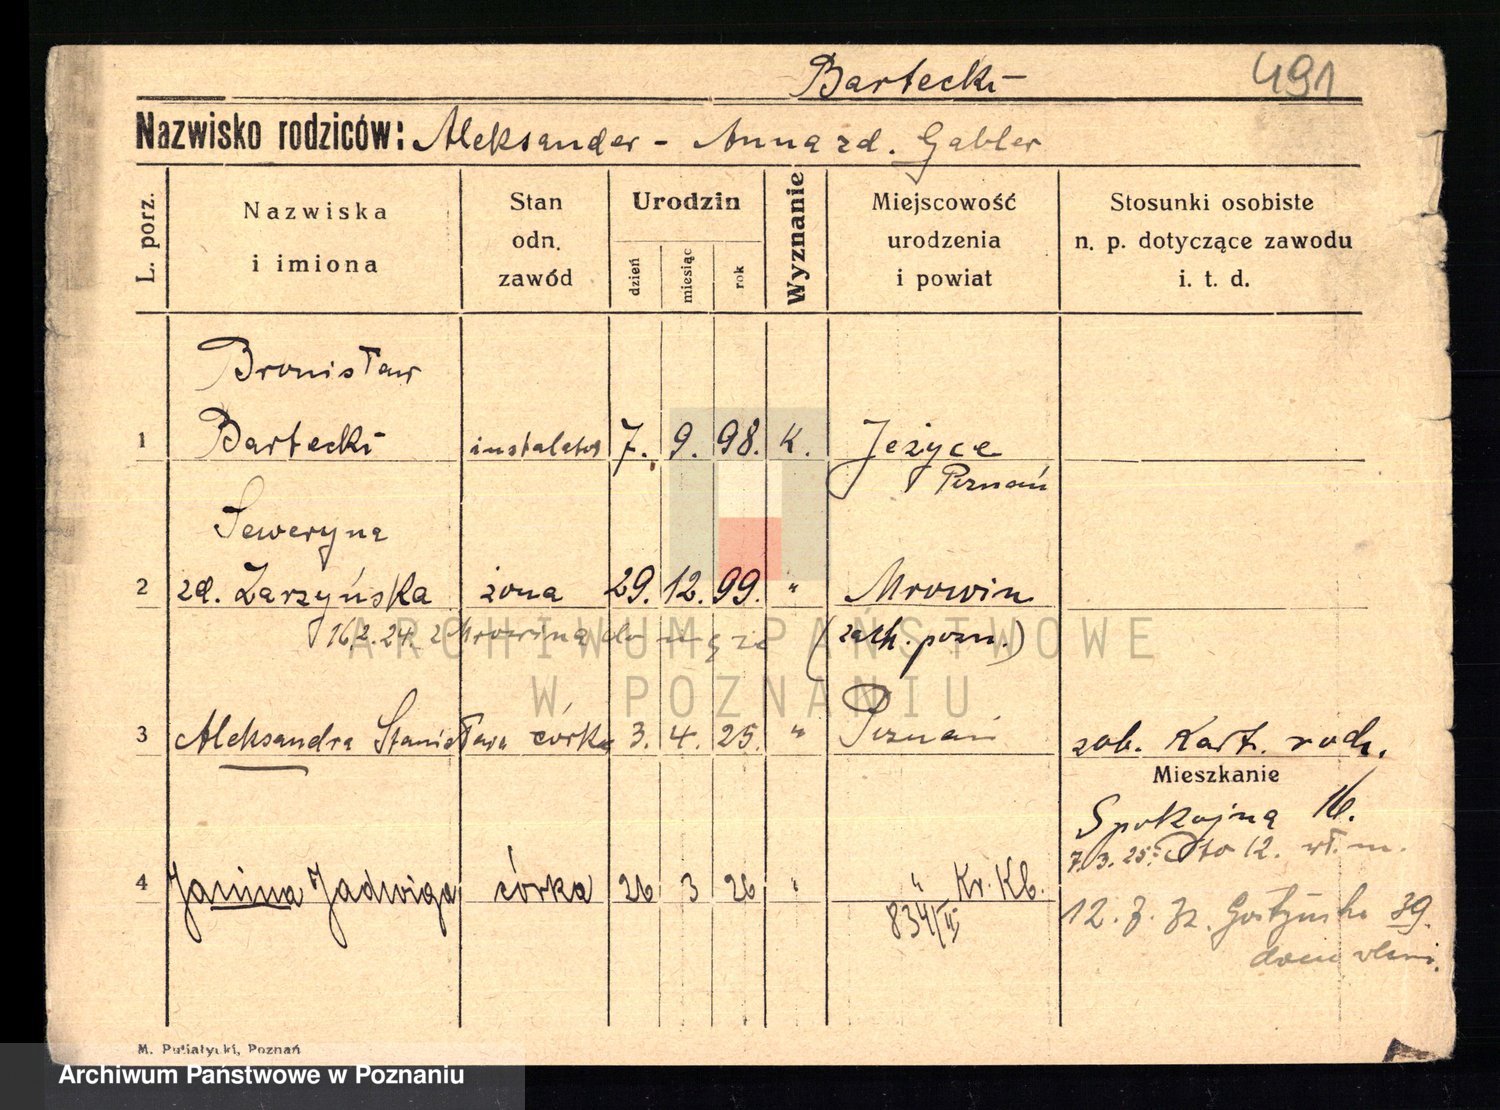 Bartecki
491
Nazwisko rodziców: Aleksander - Anna zd. Gabler
L. porz.
Nazwiska
i imiona
Stan
odn.
zawód
Urodzin
dzień
miesiąc
rok
Wyznanie
Miejscowość
urodzenia
i powiat
Stosunki osobiste
n. p. dotyczące zawodu
i. t. d.
Bronisław
1 Bartecki instalator 7. 9. 98. K. Jeżyce
Poznań
Seweryna
2 zd. Zarzyńska żona 29. 12. 99. " Mrowin
16.2.24. z Mrowina do męża (zach. pozn.)
3 Aleksandra Stanisława córka 3. 4. 25. " Poznań zob. Kart. rodz.
Mieszkanie
Spokojna 16.
7.3.25. 12. wł. m.
4 Janina Jadwiga córka 26 3 26 " " Kr. Kb.
834/II
12. 7. 32. Gostyńska 39.
dom
M. Putiatycki, Poznań
ARCHIWUM PAŃSTWOWE
W POZNANIU
Archiwum Państwowe w Poznaniu